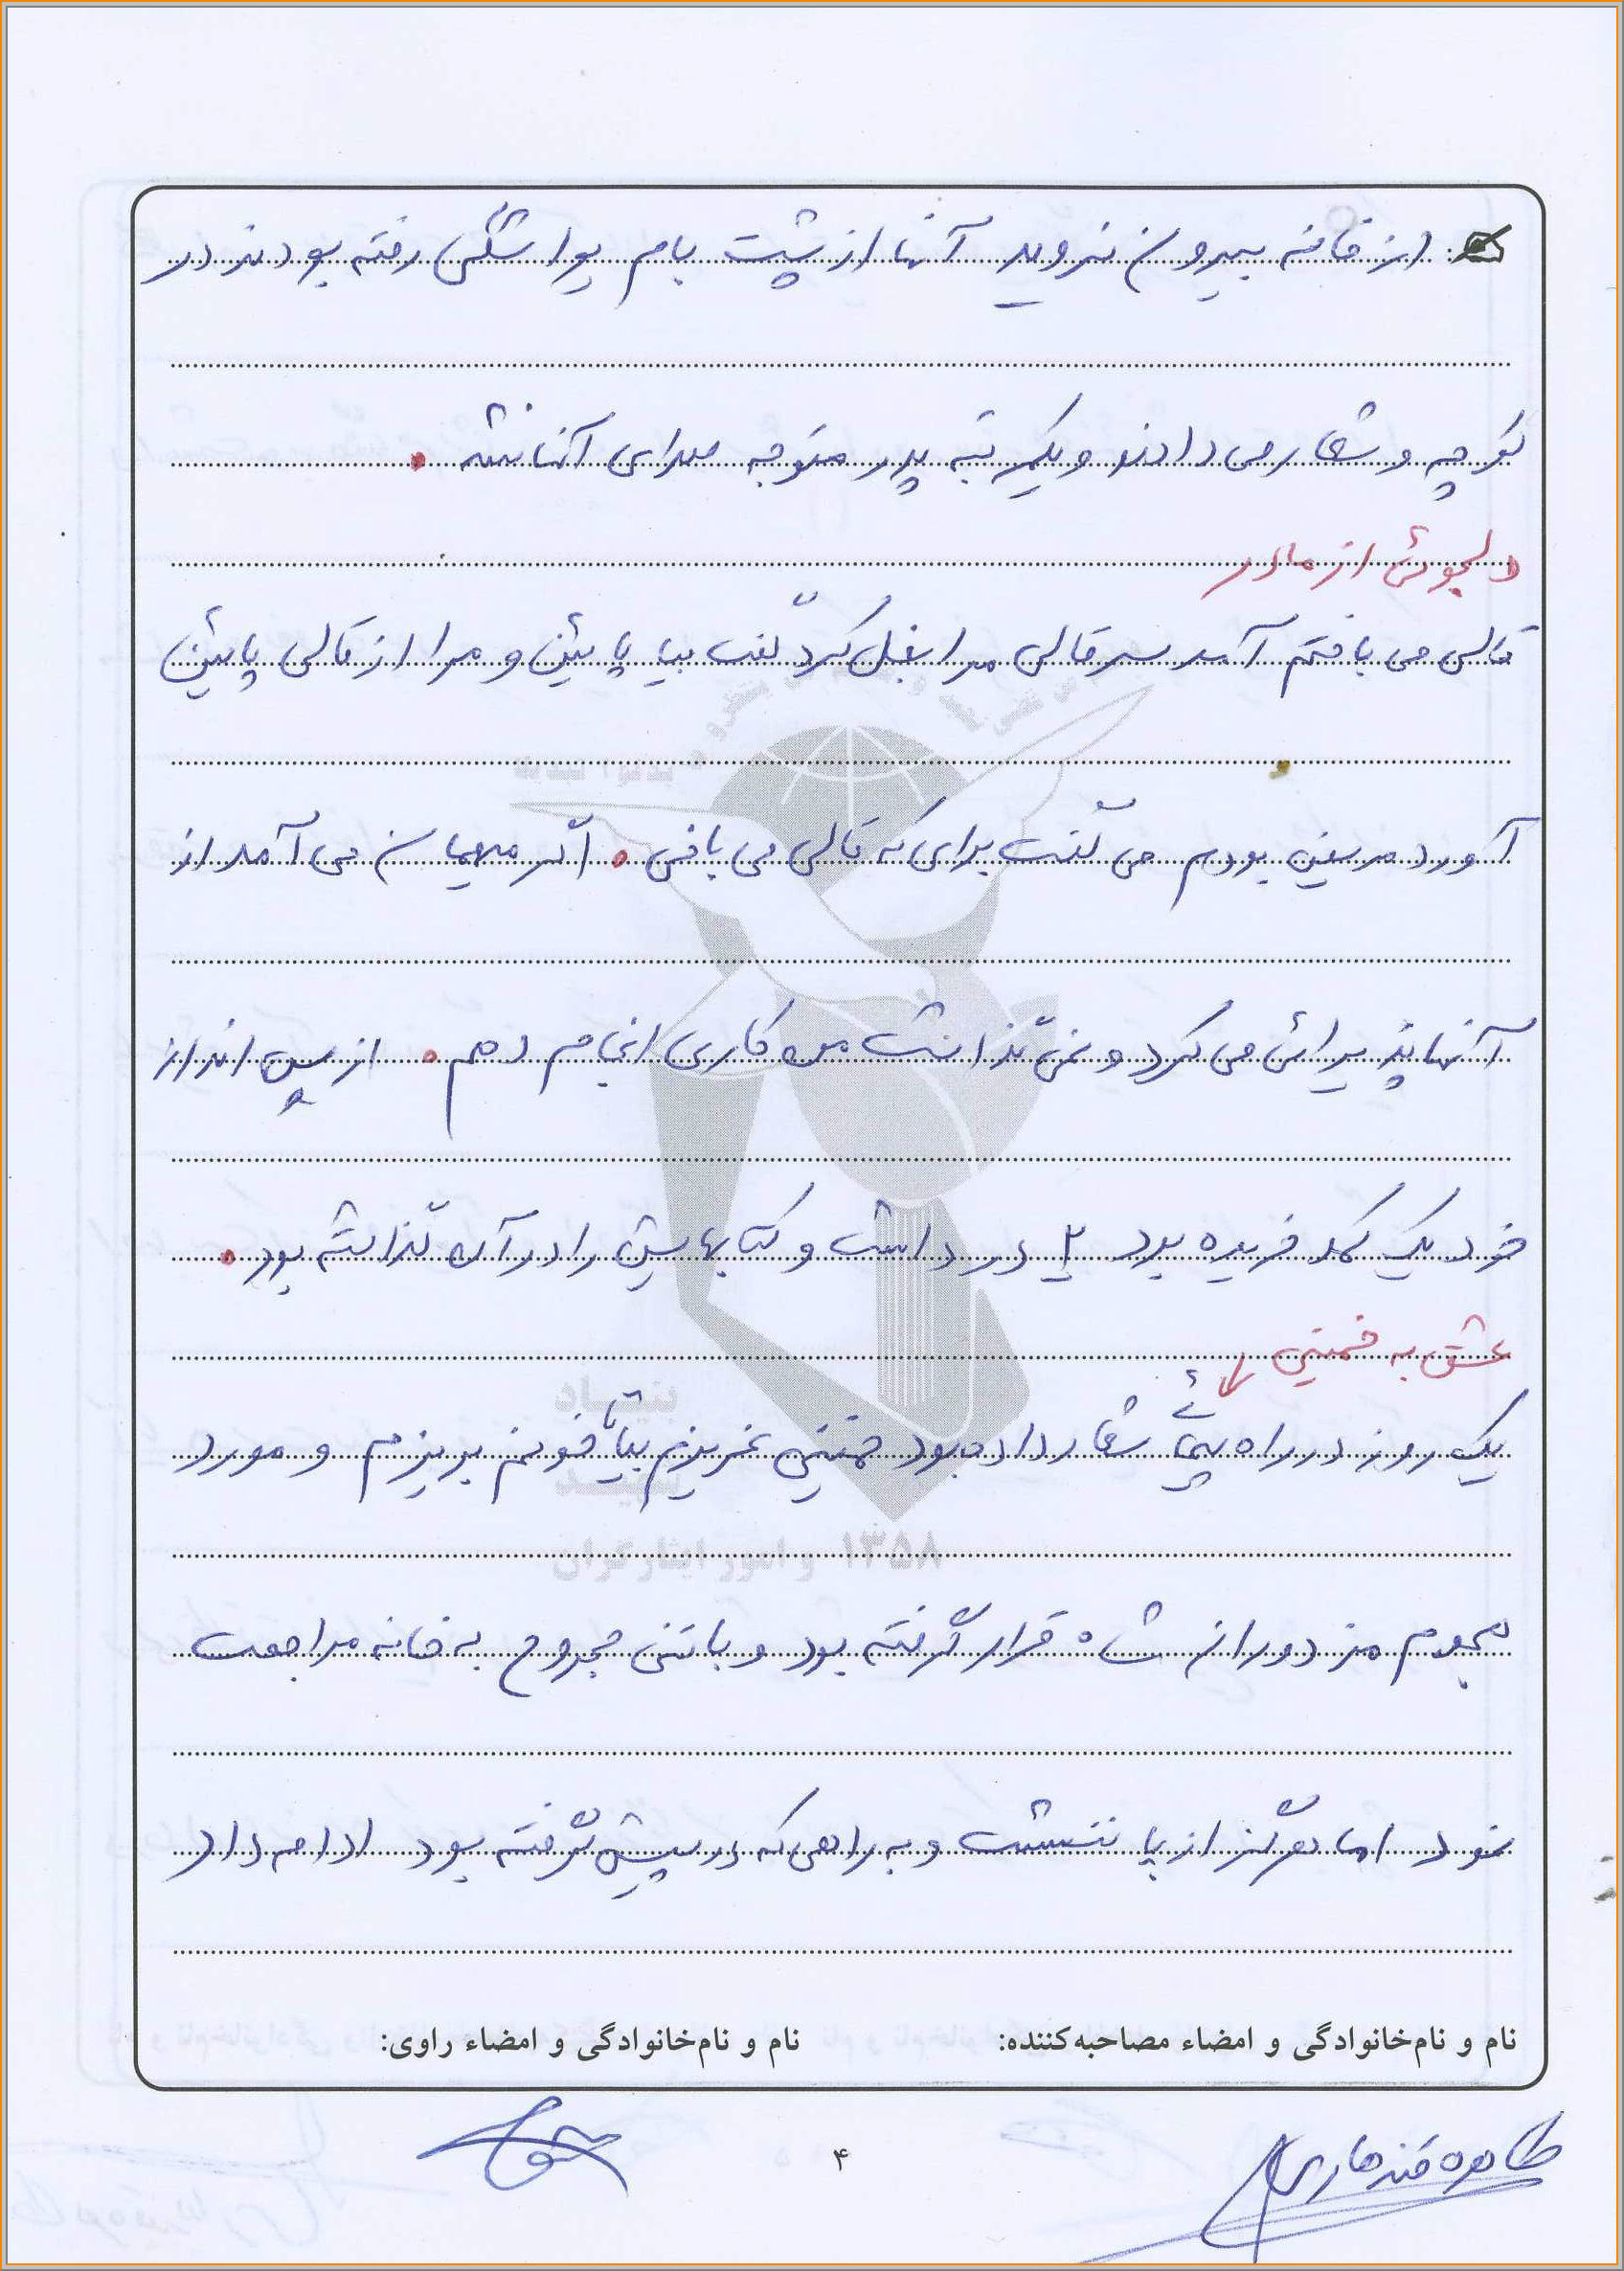 از خانه بیرون نروید آنها از پشت بام یواشکی رفته بودند در
کوچه و شعار می دادند و یکمرتبه پدر متوجه صدای آنها نشد.
دلجوئی از مادر
قالی می بافتم آمد سر قالی مرا بغل کرد گفت بیا پائین و مرا از قالی پائین
آورد مریض بودم می گفت برای که قالی می بافی. اگر میهمان می آمد از
آنها پذیرائی می کرد و نمی گذاشت من کاری انجام دهم. از پس انداز
خود یک کمد خریده بود ۲ در داشت و کتابهایش را در آن گذاشته بود.
عشق به خمینی
یک روز در راه پیمائی ها شعار داده بود خمینی عزیزم بگو تا خونم بریزم و مورد
هجوم مزدوران شاه قرار گرفته بود و با تنی مجروح به خانه مراجعت
نمود اما هرگز از پا ننشست و به راهی که در پیش گرفته بود ادامه داد
نام و نام‌خانوادگی و امضاء مصاحبه‌کننده: نام و نام‌خانوادگی و امضاء راوی:
طاهره قندهاری
۴
بنیاد
شهید
و امور ایثارگران ۱۳۵۸